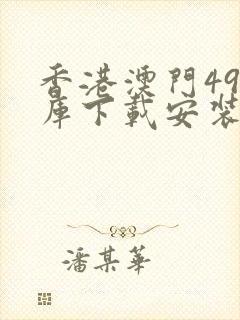 香港澳門49
庫下載安裝
潘某華